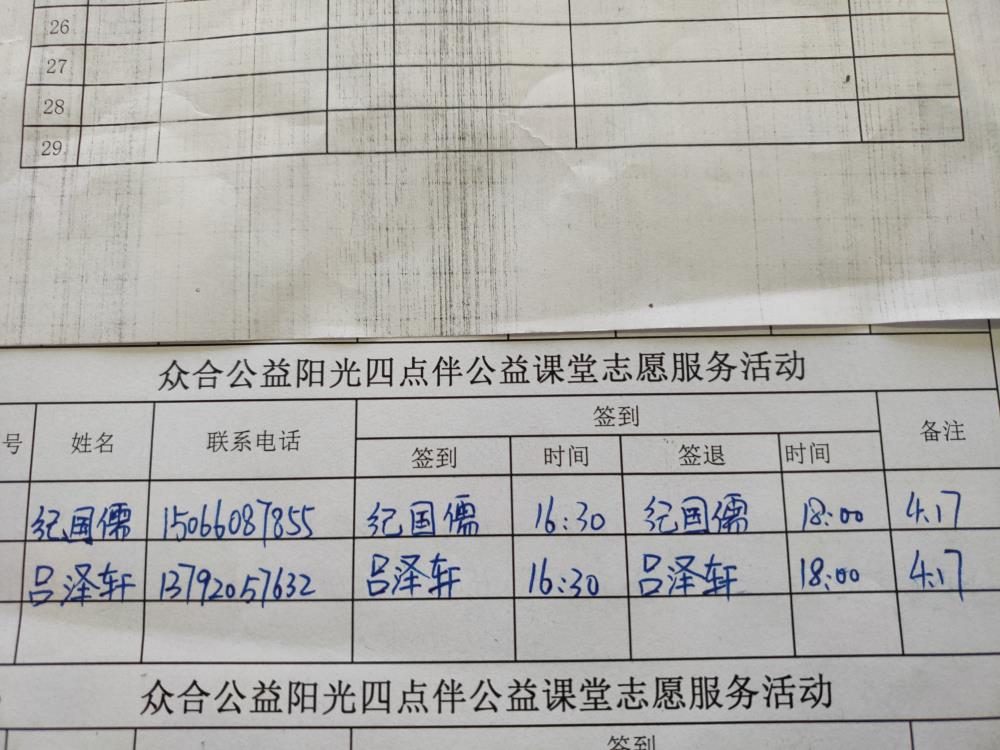 26
27
28
29
众合公益阳光四点伴公益课堂志愿服务活动
号 姓名 联系电话 签到 备注
签到 时间 签退 时间
纪国儒 15066087855 纪国儒 16:30 纪国儒 18:00 4.17
吕泽轩 13792057632 吕泽轩 16:30 吕泽轩 18:00 4.17
众合公益阳光四点伴公益课堂志愿服务活动
签到